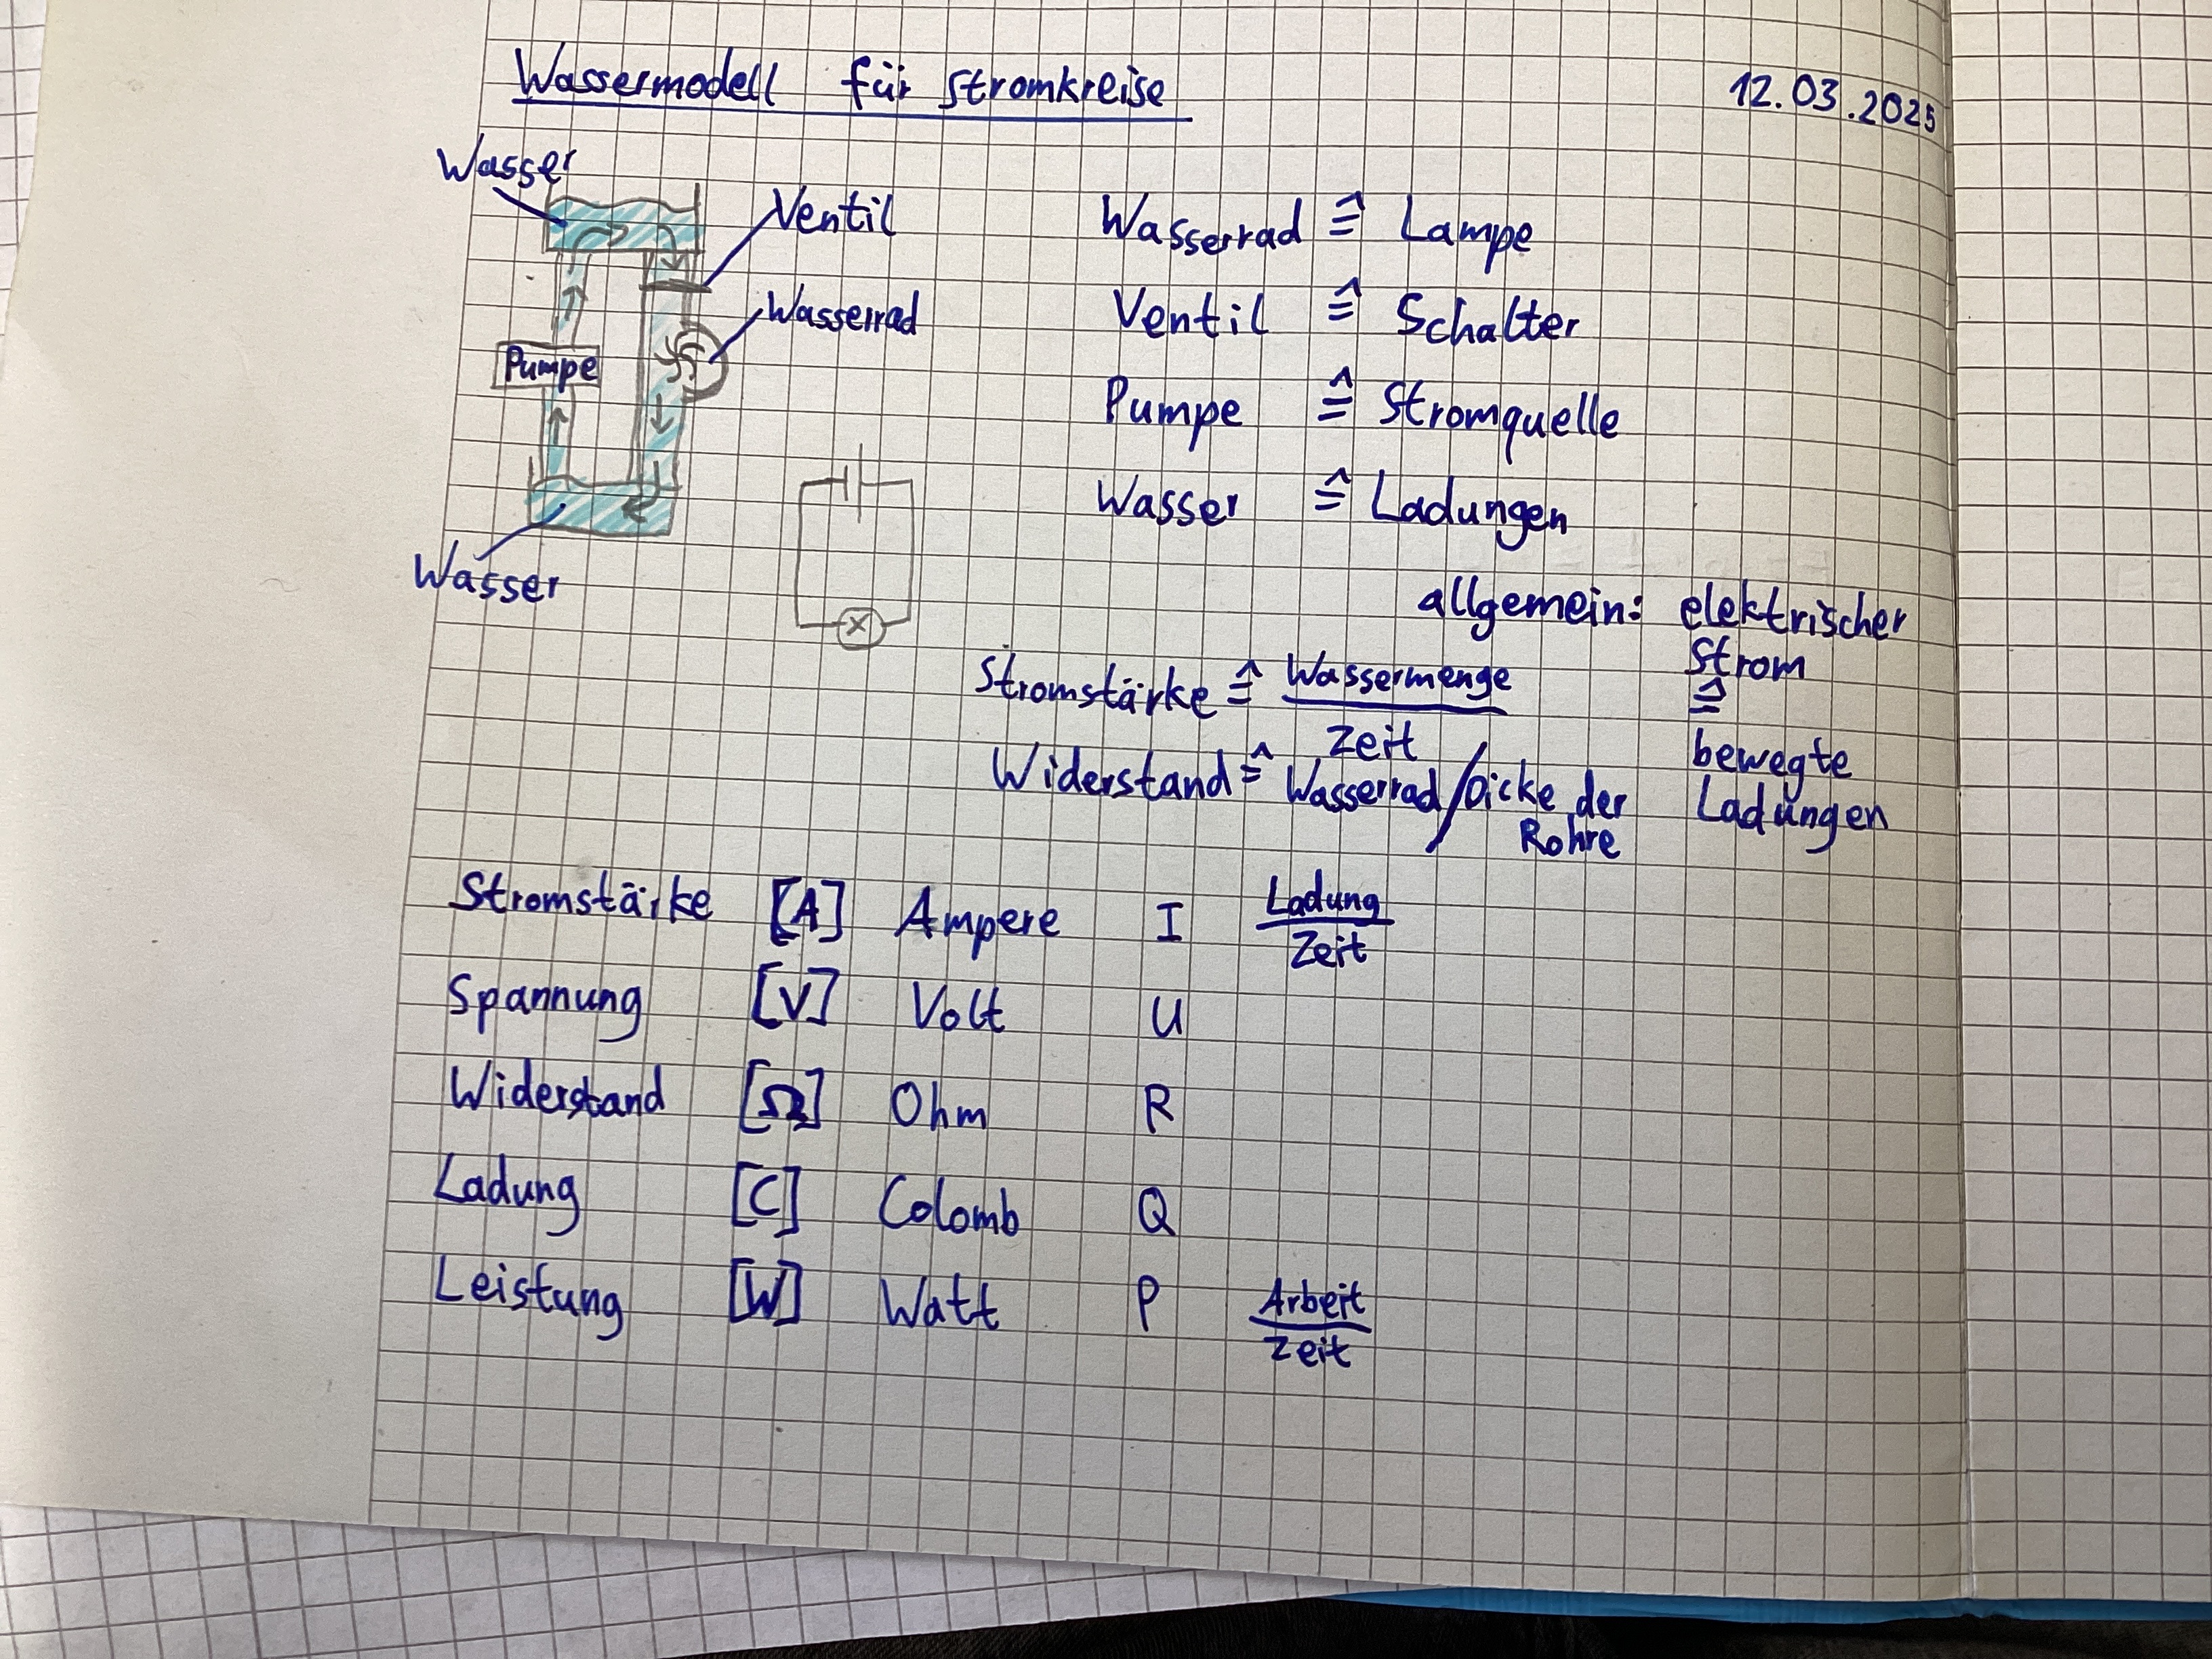 Wassermodell für Stromkreise 12.03.2025
Wasser
Ventil
Wasserrad
Pumpe
Wasser
Wasserrad ≙ Lampe
Ventil ≙ Schalter
Pumpe ≙ Stromquelle
Wasser ≙ Ladungen
allgemein: elektrischer
Strom
≙
bewegte
Ladungen
Stromstärke ≙ Wassermenge
Zeit
Widerstand ≙ Wasserrad / Dicke der
Rohre
Stromstärke [A] Ampere I Ladung
Zeit
Spannung [V] Volt U
Widerstand [Ω] Ohm R
Ladung [C] Colomb Q
Leistung [W] Watt P Arbeit
Zeit